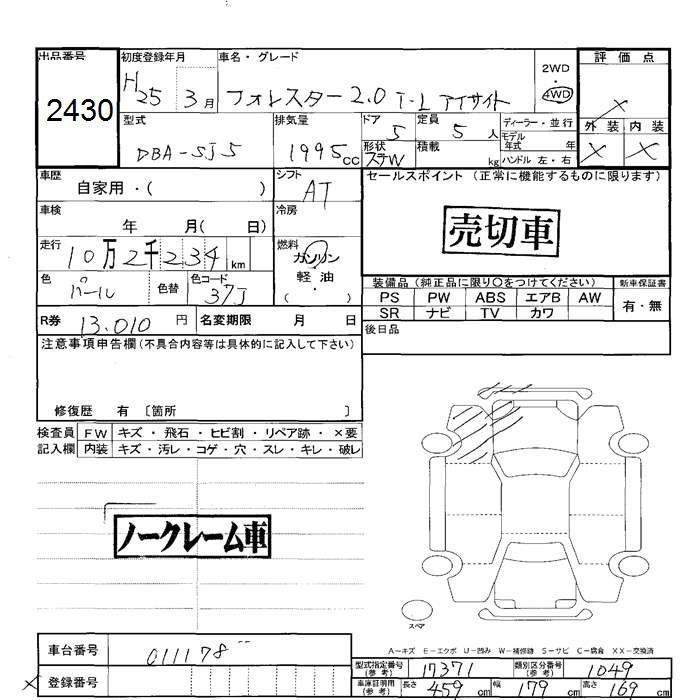 出品番号
2430
初度登録年月
H25 3月
車名・グレード
フォレスター 2.0 i-L アイサイト
2WD
・
4WD
評価点
×
外装 内装
× ×
型式
DBA-SJ5
排気量
1995cc
ドア
5
定員
5人
形状
ステW
積載
kg
ディーラー・並行
モデル年式 年
ハンドル 左・右
車歴
自家用・( )
シフト
AT
セールスポイント (正常に機能するものに限ります)
売切車
車検
年 月( 日)
冷房
走行
10万2千234km
燃料
ガソリン
軽油
( )
色
パール
色替
色コード
37J
装備品 (純正品に限り○をつけてください)
新車保証書
PS PW ABS エアB AW
有・無
SR ナビ TV カワ
R券 13,010円
名変期限 月 日
後日品
注意事項申告欄 (不具合内容等は具体的に記入して下さい)
修復歴 有 〔箇所 〕
検査員 FW キズ・飛石・ヒビ割・リペア跡・×要
記入欄 内装 キズ・汚レ・コゲ・穴・スレ・キレ・破レ
ノークレーム車
スペア
A〜キズ E−エクボ U−凹み W−補修跡 S−サビ C−腐食 XX−交換済
車台番号 011178
登録番号
×
型式指定番号(参考) 17371
類別区分番号(参考) 1049
車庫証明用(参考) 長さ 459cm 幅 179cm 高さ 169cm